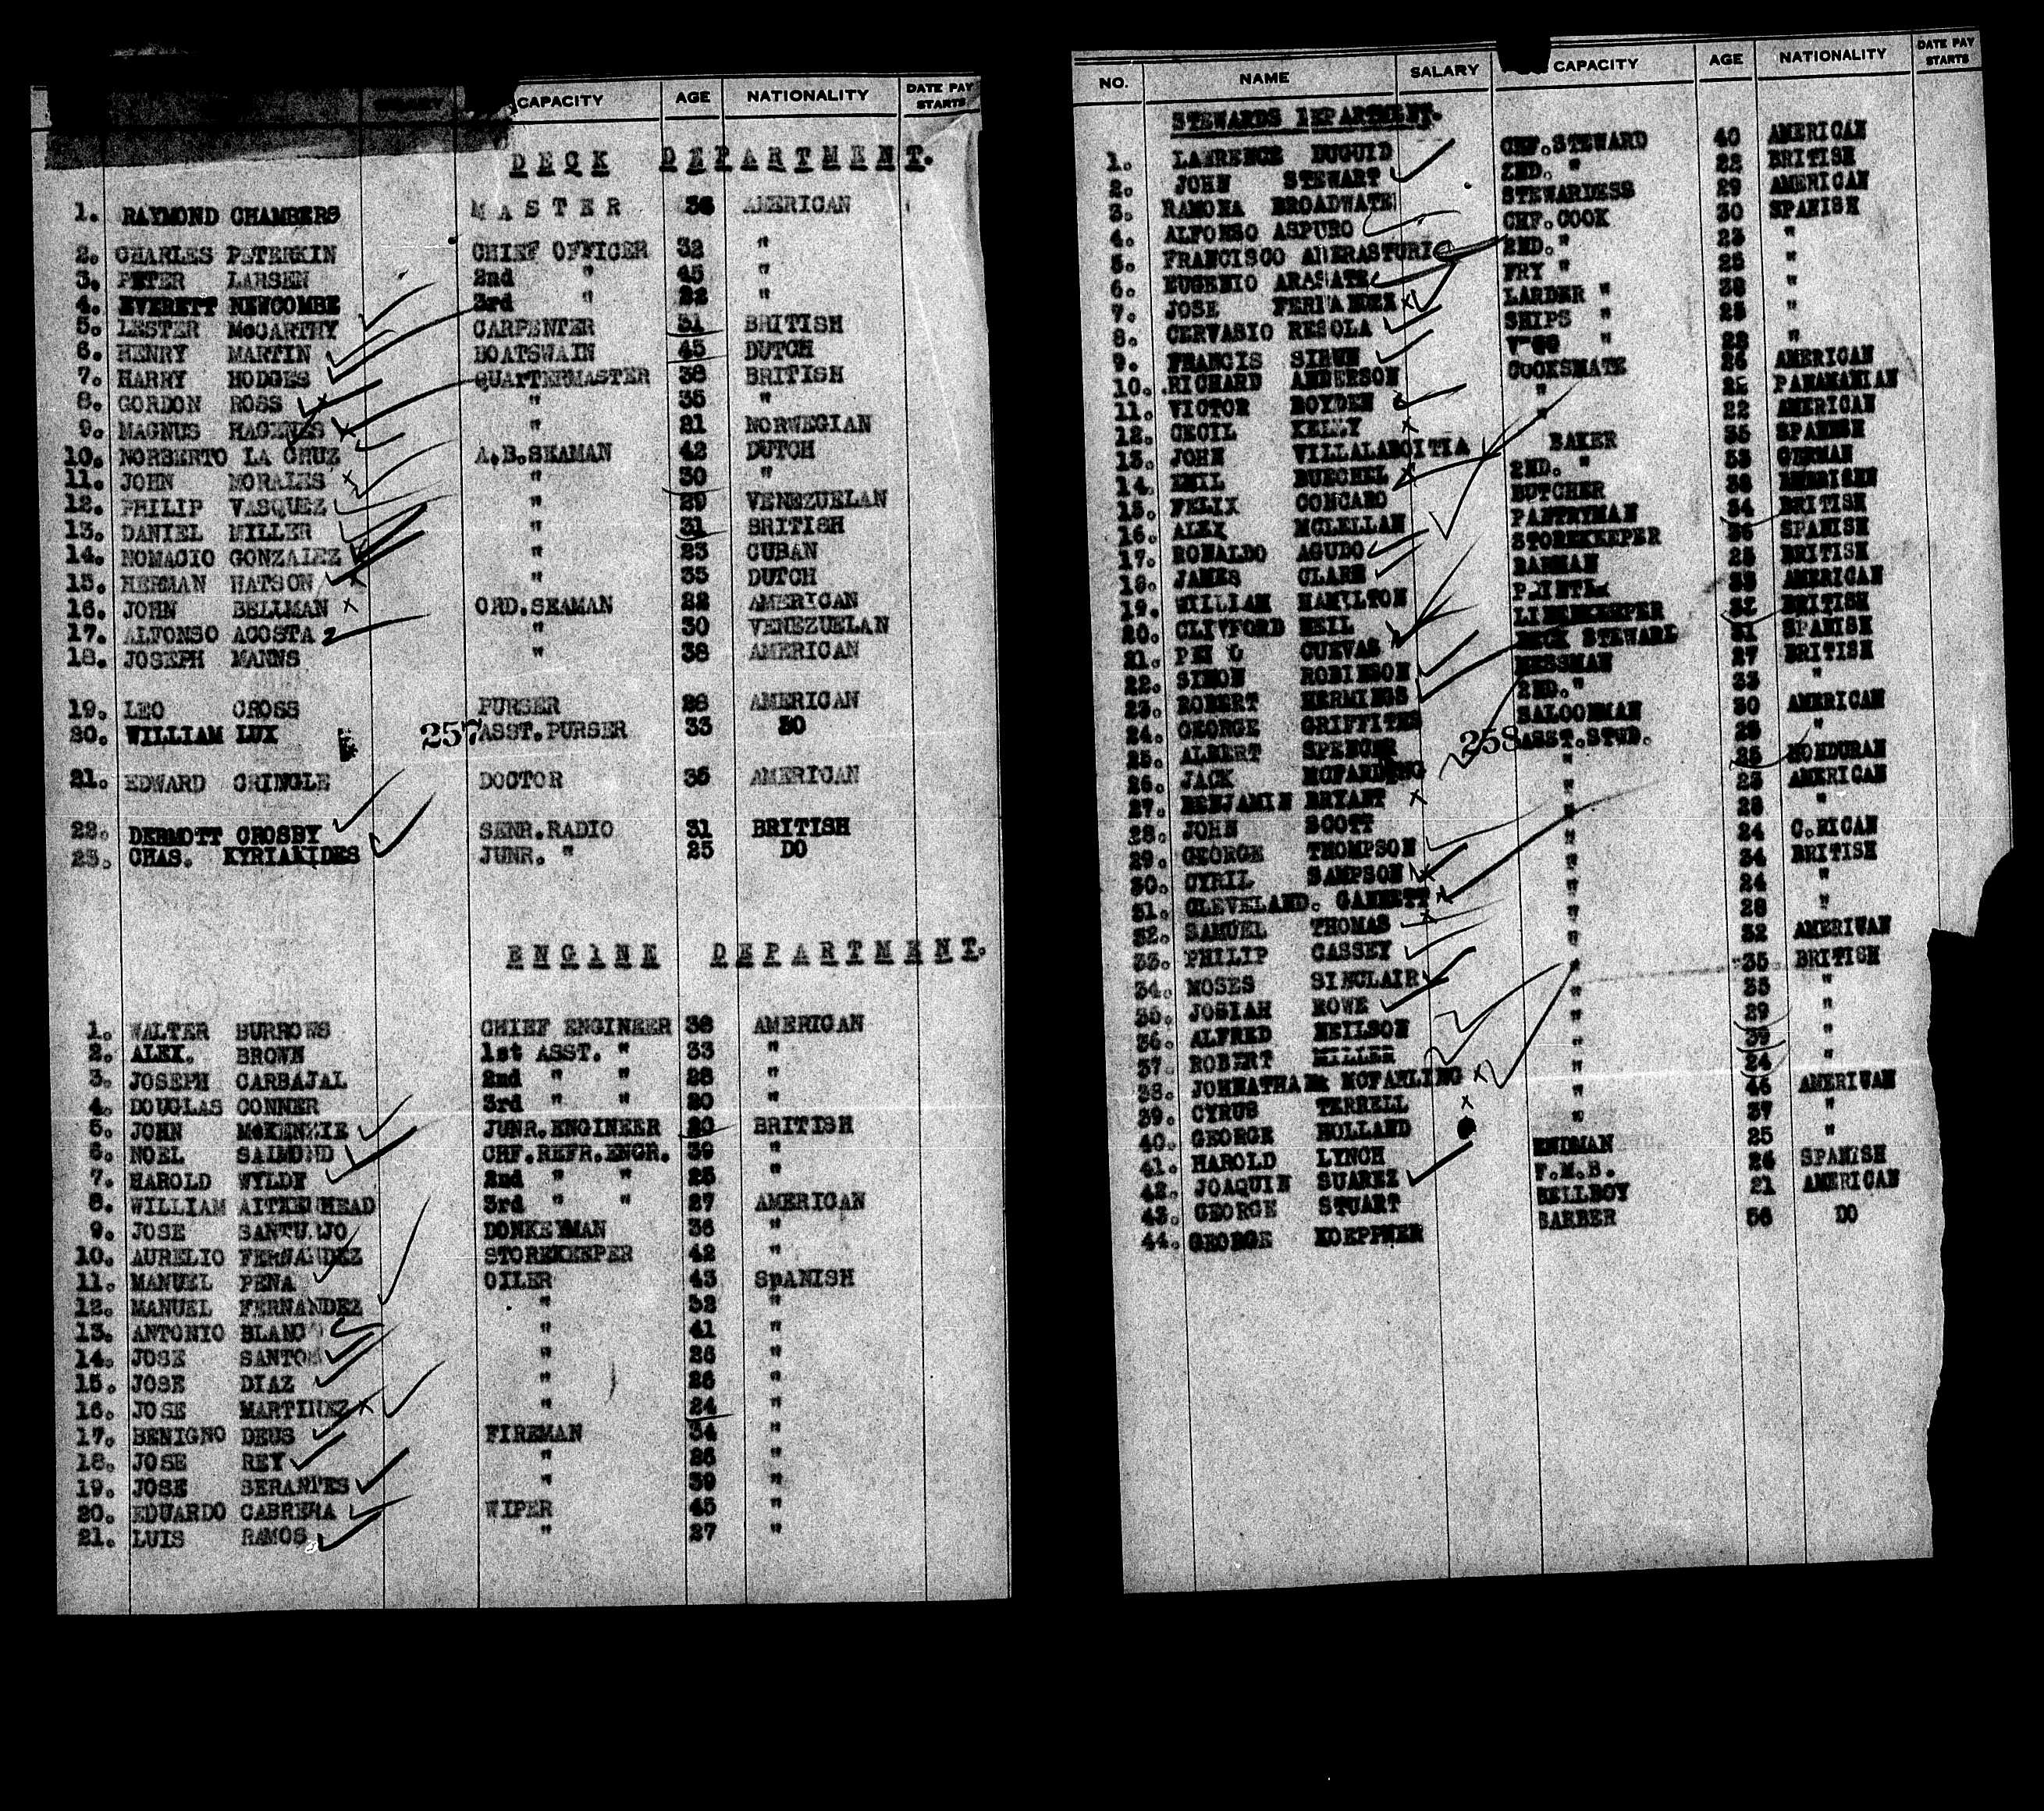 CAPACITY AGE NATIONALITY DATE PAY STARTS
DECK DEPARTMENT.
1. RAYMOND CHAMBERS MASTER 36 AMERICAN
2. CHARLES PETERKIN CHIEF OFFICER 32 "
3. PETER LARSEN 2nd " 45 "
4. EVERETT NEWCOMBE 3rd " 22 "
5. LESTER McCARTHY CARPENTER 31 BRITISH
6. HENRY MARTIN BOATSWAIN 45 DUTCH
7. HARRY HODGES QUARTERMASTER 38 BRITISH
8. GORDON ROSS " 35 "
9. MAGNUS HAGENES " 21 NORWEGIAN
10. NORBERTO LA CRUZ A.B.SEAMAN 42 DUTCH
11. JOHN MORALES " 30 "
12. PHILIP VASQUEZ " 29 VENEZUELAN
13. DANIEL MILLER " 31 BRITISH
14. NOMACIO GONZALEZ " 23 CUBAN
15. HERMAN HATSON " 35 DUTCH
16. JOHN BELLMAN ORD.SEAMAN 22 AMERICAN
17. ALFONSO ACOSTA " 30 VENEZUELAN
18. JOSEPH MANNS " 38 AMERICAN
19. LEO CROSS PURSER 28 AMERICAN
20. WILLIAM LUX 257 ASST.PURSER 33 DO
21. EDWARD GRINGLE DOCTOR 35 AMERICAN
22. DERMOTT CROSBY SENR.RADIO 31 BRITISH
23. CHAS. KYRIAKIDES JUNR. " 25 DO
ENGINE DEPARTMENT.
1. WALTER BURROWS CHIEF ENGINEER 38 AMERICAN
2. ALEX. BROWN 1st ASST. " 33 "
3. JOSEPH CARBAJAL 2nd " " 28 "
4. DOUGLAS CONNER 3rd " " 20 "
5. JOHN McKENZIE JUNR.ENGINEER 20 BRITISH
6. NOEL SALMOND CHF.REFR.ENGR. 39 "
7. HAROLD WYLDE 2nd " " 25 "
8. WILLIAM AITKENHEAD 3rd " " 27 AMERICAN
9. JOSE DONKEYMAN 36 "
10. AURELIO FERNANDEZ STOREKEEPER 42 "
11. MANUEL PENA OILER 43 SpANISH
12. MANUEL FERNANDEZ " 32 "
13. ANTONIO BLANCO " 41 "
14. JOSE SANTOS " 26 "
15. JOSE DIAZ " 26 "
16. JOSE MARTINEZ " 24 "
17. BENIGNO DEUS FIREMAN 34 "
18. JOSE REY " 26 "
19. JOSE SERANTES " 39 "
20. EDUARDO CABRERA WIPER 45 "
21. LUIS RAMOS " 27 "
NO. NAME SALARY CAPACITY AGE NATIONALITY DATE PAY STARTS
STEWARDS DEPARTMENT.
1. LAWRENCE DUGUID CHF.STEWARD 40 AMERICAN
2. JOHN STEWART 2ND. " 28 BRITISH
3. RAMONA BROADWATE STEWARDESS 29 AMERICAN
4. ALFONSO ASPURO CHF.COOK 30 SPANISH
5. FRANCISCO 2ND. " 23 "
6. EUGENIO FRY " 25 "
7. JOSE FERNANDEZ LARDER " 38 "
8. GERVASIO RESOLA SHIPS " 25 "
9. FRANCIS " 28 "
10. RICHARD ANDERSON COOKSMATE 26 AMERICAN
11. VICTOR BOYDEN " 25 PANAMANIAN
12. CECIL KELLY " 22 AMERICAN
13. JOHN VILLALABOITIA BAKER 35 SPANISH
14. EMIL BUECHEL 2ND. " 53 GERMAN
15. FELIX CONCARO BUTCHER 38 AMERICAN
16. ALEX McLELLAN PANTRYMAN 34 BRITISH
17. RONALDO AGUDO STOREKEEPER 36 SPANISH
18. JAMES CLARK BARMAN 25 BRITISH
19. WILLIAM HAMILTON PRINTER 28 AMERICAN
20. CLIFFORD NEIL LINENKEEPER 32 BRITISH
21. CUEVAS DECK STEWARD 31 SPANISH
22. SIMON ROBINSON MESSMAN 27 BRITISH
23. ROBERT HERMINGS 2ND. " 33 "
24. GEORGE GRIFFITHS SALOONMAN 30 AMERICAN
25. ALBERT SPENCER 258 ASST.STWD. 28 "
26. JACK " 25 HONDURAN
27. BENJAMIN BRYANT " 23 AMERICAN
28. JOHN SCOTT " 28 "
29. GEORGE THOMPSON " 24 C.RICAN
30. CYRIL SAMPSON " 34 BRITISH
31. CLEVELAND. GANNETT " 24 "
32. SAMUEL THOMAS " 28 "
33. PHILIP CASSEY " 32 AMERICAN
34. MOSES SINCLAIR " 35 BRITISH
35. JOSIAH ROWE " 35 "
36. ALFRED NEILSON " 29 "
37. ROBERT MILLER " 39 "
38. McFARLING " 24 "
39. CYRUS TERRELL " 46 AMERICAN
40. GEORGE HOLLAND " 37 "
41. HAROLD LYNCH ENDMAN 25 "
42. JOAQUIN SUAREZ F.M.B. 26 SPANISH
43. GEORGE STUART BELLBOY 21 AMERICAN
44. GEORGE KOEPPNER BARBER 56 DO